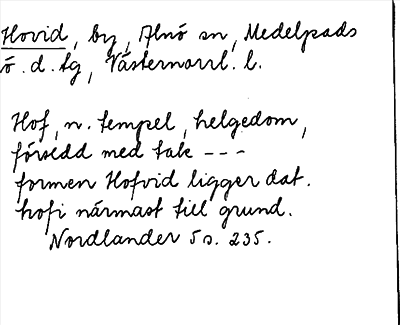 Hovid, by, Alnö sn, Medelpads
ö. d. tg, Västernorrl. l.
Hof, n. tempel, helgedom,
försedd med tak - - -
formen Hofvid ligger dat.
hofi närmast till grund.
Nordlander 5 s. 235.